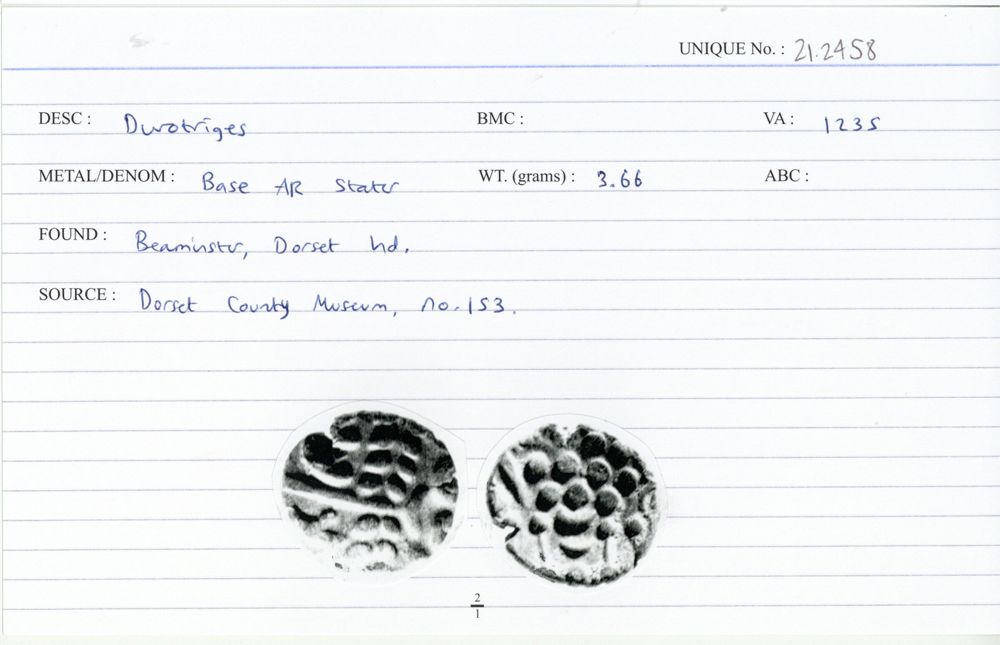 UNIQUE No. : 21.2458
DESC : Durotriges BMC : VA : 1235
METAL/DENOM : Base AR Stater WT. (grams) : 3.66 ABC :
FOUND : Beaminster, Dorset hd.
SOURCE : Dorset County Museum, no. 153.
2
1